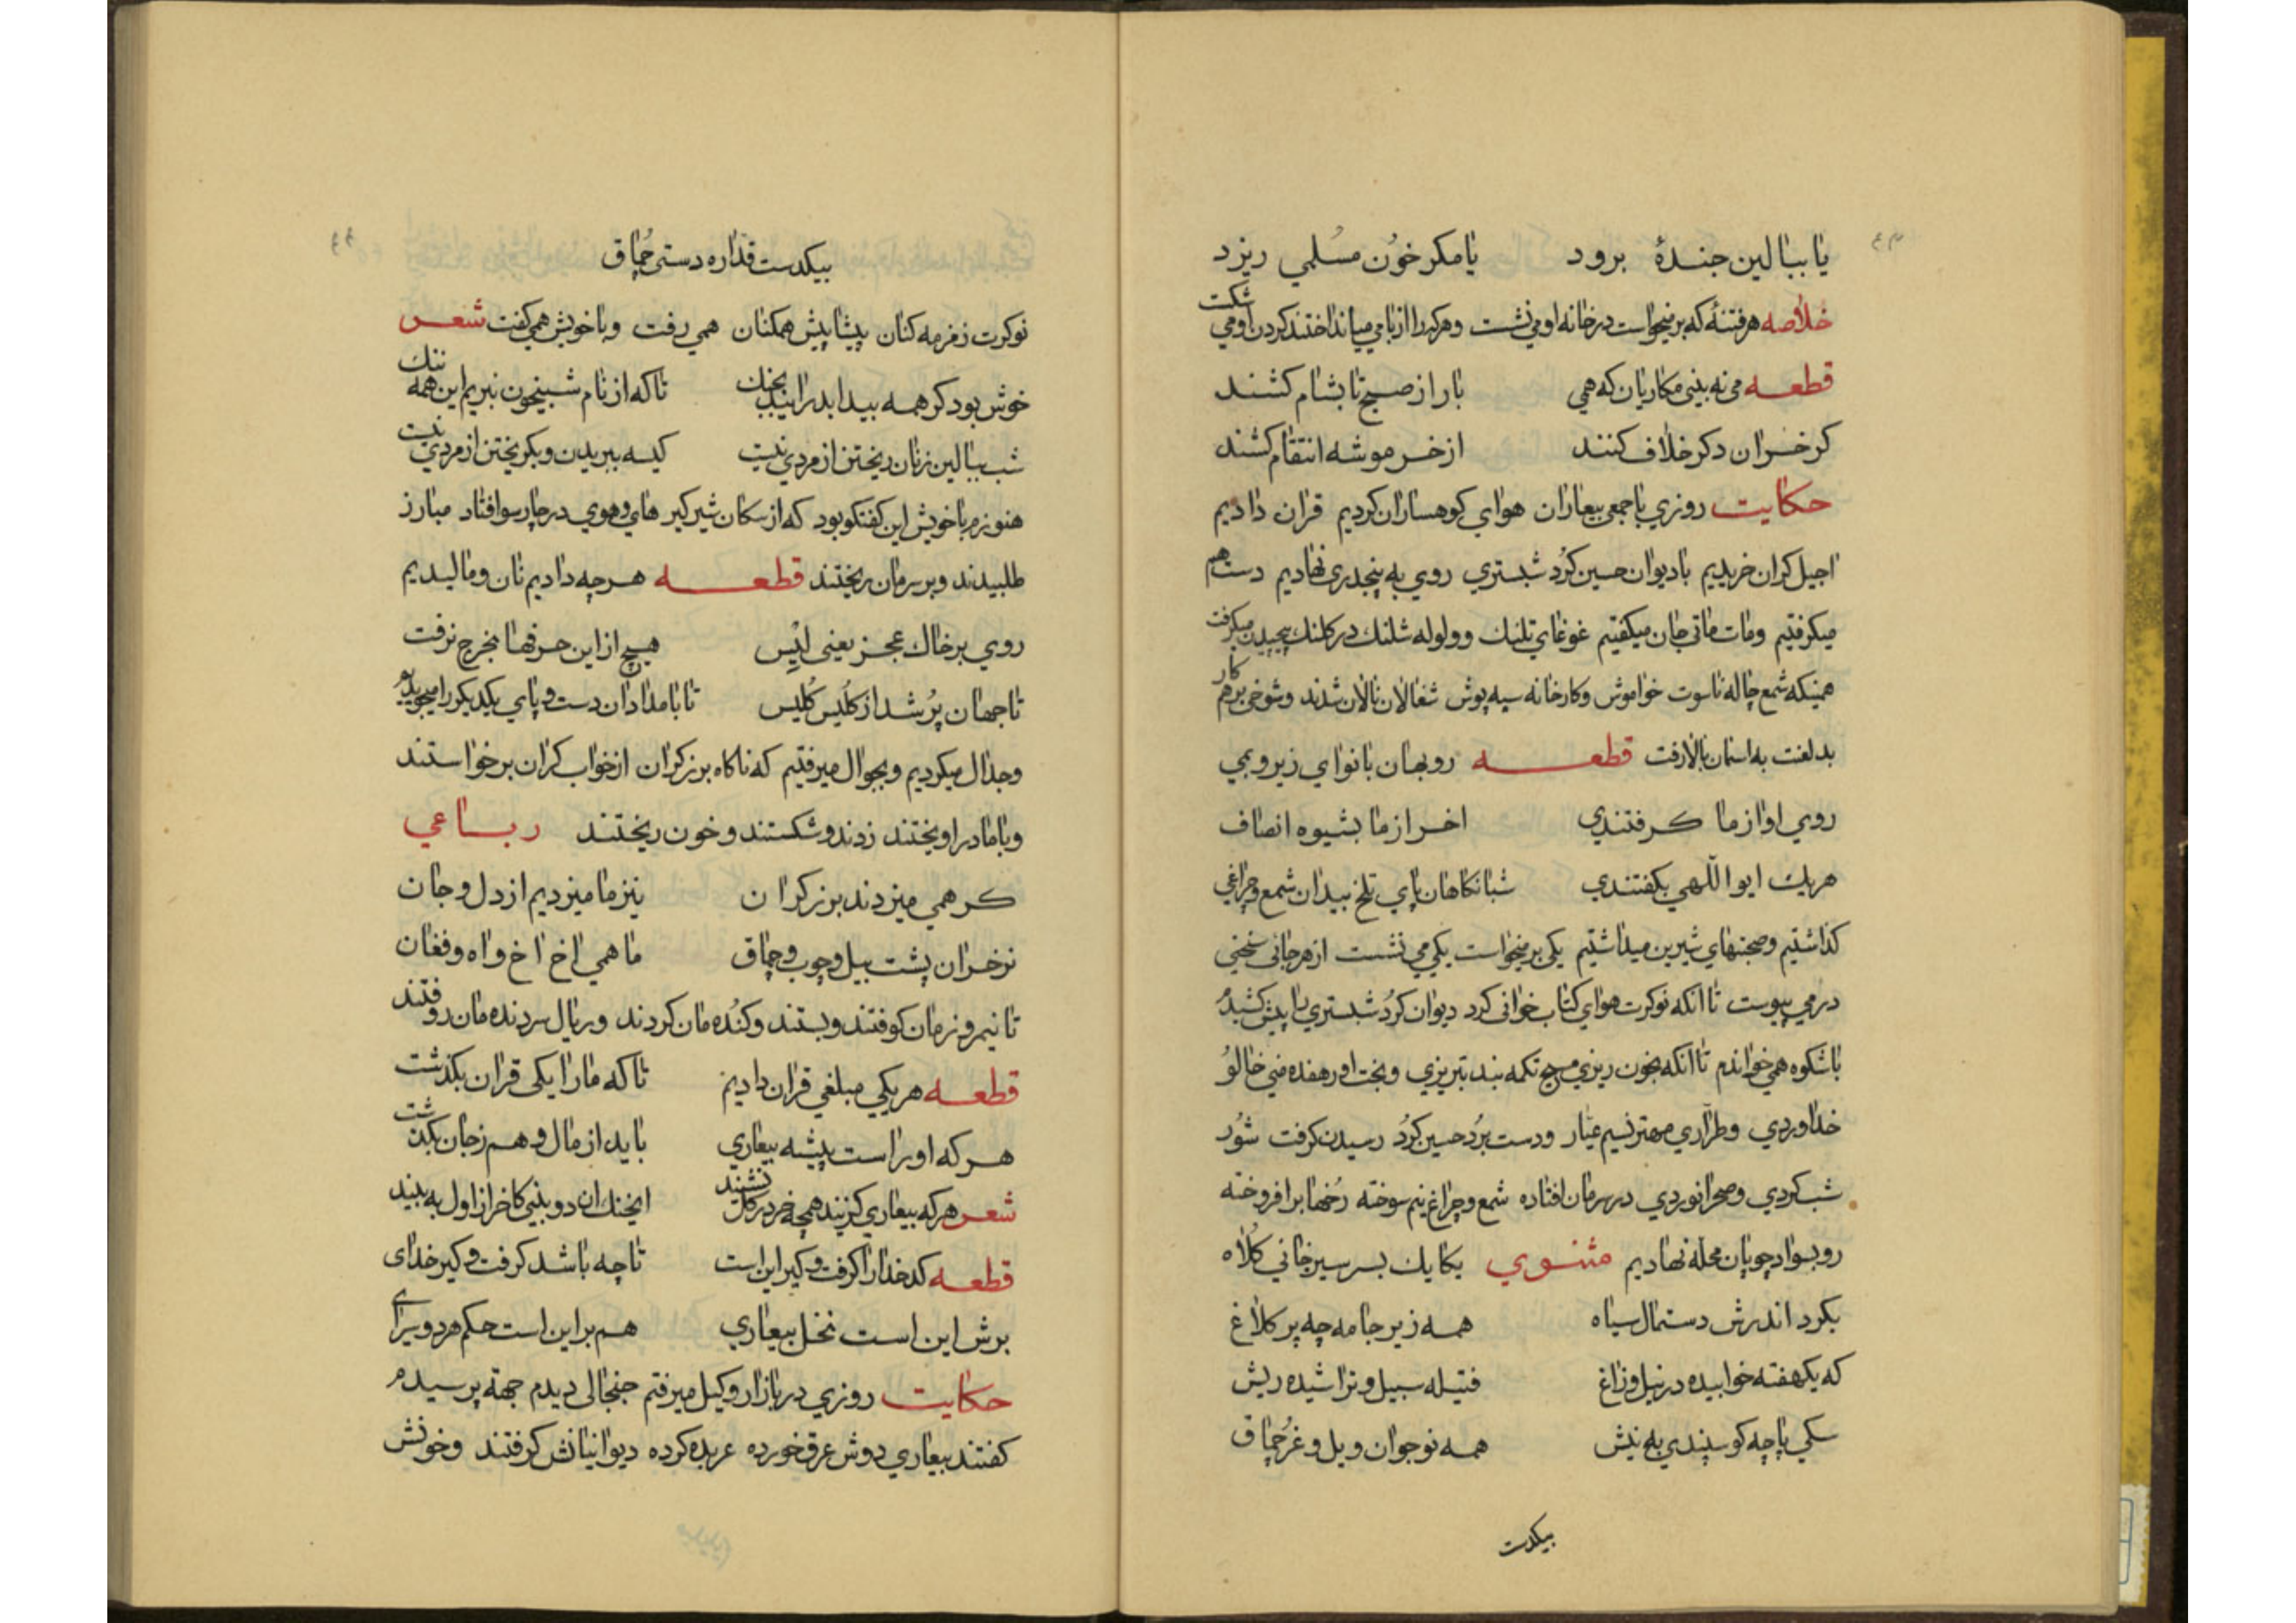 یا ببالین جندهٔ برود یا مکر خون مسلمي ریزد
خلاصه هر فتنهٔ که بر میخواست در خانه او می نشست وهرکه را از بامی میانداختند کردن او می شکست
قطعه می نه بینی مکاریان که همی بار از صبح تا بشام کشند
کر خران دکر خلاف کنند از خر موشه انتقام کشند
حکایت روزي با جمعی بیعاران هوای کوهساران کردیم قران دادیم
اجیل کران خریدیم با دیوان حسین کُرد شبستري روي به پنجدری نهادیم دست هم
میکرفتیم ومات ماتی جان میکفتیم غوغای تلنبك وولوله شلنك در کلنك پیچیدن میکرفت
همینکه شمع چاله ناسوت خواموش وکارخانه سیه پوش شغالان نالان شدند وشوخی بر هم کار
بد لغت به استان بالا رفت قطعه روبهان با نوای زیر و بمي
روي او از ما کرفتندي اخر از ما بشیوه انصاف
هریك ایو اللهي بکفتندي شبانکاهان پاي تلخ بیدان شمع وچراغي
کذاشتیم وصحبتهاي شیرین میداشتیم یکی بر میخواست یکي می نشست از هر جانی سخنی
در می پیوست تا انکه نوکرت هوای کتاب خوانی کرد دیوان کُرد شبستري را پیش کشیدم
با شکوه همی خواندم تا انکه بخون ریزي مسیح تکمه بند تبریزي وبخت او در هفده منی خالو
خداوردي وطراري مهتر نسیم عیار ودست برُد حسین کُرد رسیدن کرفت شور
شب کردي وصحرا نوردي در سرمان افتاده شمع وچراغ نیم سوخته رخها بر افروخته
رو بسواد چوپان محله نهادیم مثنوي یکایك بسر سیرخانی کلاه
بکرد اندرش دستمال سیاه همه زیر جامه چه پر کلاغ
که یکهفته خوابیده در نیل وزاغ فتیله سبیل وتراشیده ریش
سکی پاچه کوسپندي به نیش همه نوجوان ویل وغرُ چماق
بیکدست
بیکدست قداره دستی چُماق
نوکرت زمزمه کنان پیشاپیش همکنان همی رفت وبا خویش همی کفت شعر
خوش بود کر همه بیدا بدر ایند بجنك تا که از نام شبیخون نبریم این همه ننك
شب ببالین زنان ریختن از مردي نیست کیسه ببریدن وبکریختن از مردي نیست
هنوزم با خویش این کفتکو بود که از سکان شیر کیر هاي وهوي در چارسو افتاد مبارز
طلبیدند وبر سرمان ریختند قطعه هرچه دادیم نان ومالیدیم
روي بر خاك عجز یعنی ایٔس هیچ از این حرفها بخرج نرفت
تا جهان پُر شد از کلُیس کلُیس تا بامدادان دست و پاي یکدیکر را میجویدیم
وجدال میکردیم وبجوال میرفتیم که ناکاه برزکران از خواب کران برخواستند
وبا ما در اویختند زدند وشکستند وخون ریختند رباعي
کر همی میزدند برزکران نیز ما میزدیم از دل وجان
نرخران پشت بیل وچوب وچماق ما همی اخ اخ واه وفغان
تا نیمروزمان کوفتند وبستند وکنُده مان کردند وریال سر دنده مان روفتند
قطعه هریکي مبلغی قران دادیم تا که ما را یکی قران بکذشت
هرکه اورا است پیشه بیعاري باید از مال وهم زجان بکذشت
شعر هرکه بیعاري کزیند همچه خر در کل نشیند ایخنك ان دو بینی کاخر از اول به بیند
قطعه کدخدا را کرفت وکیر این است تا چه باشد کرفت وکیر خداي
برش این است نخل بیعاري هم بر این است حکم هر دوسراي
حکایت روزي در بازار وکیل میرفتم جنجالی دیدم جهة پرسیدم
کفتند بیعاري دوش عرق خورده عربده کرده دیوانیانش کرفتند وخونش